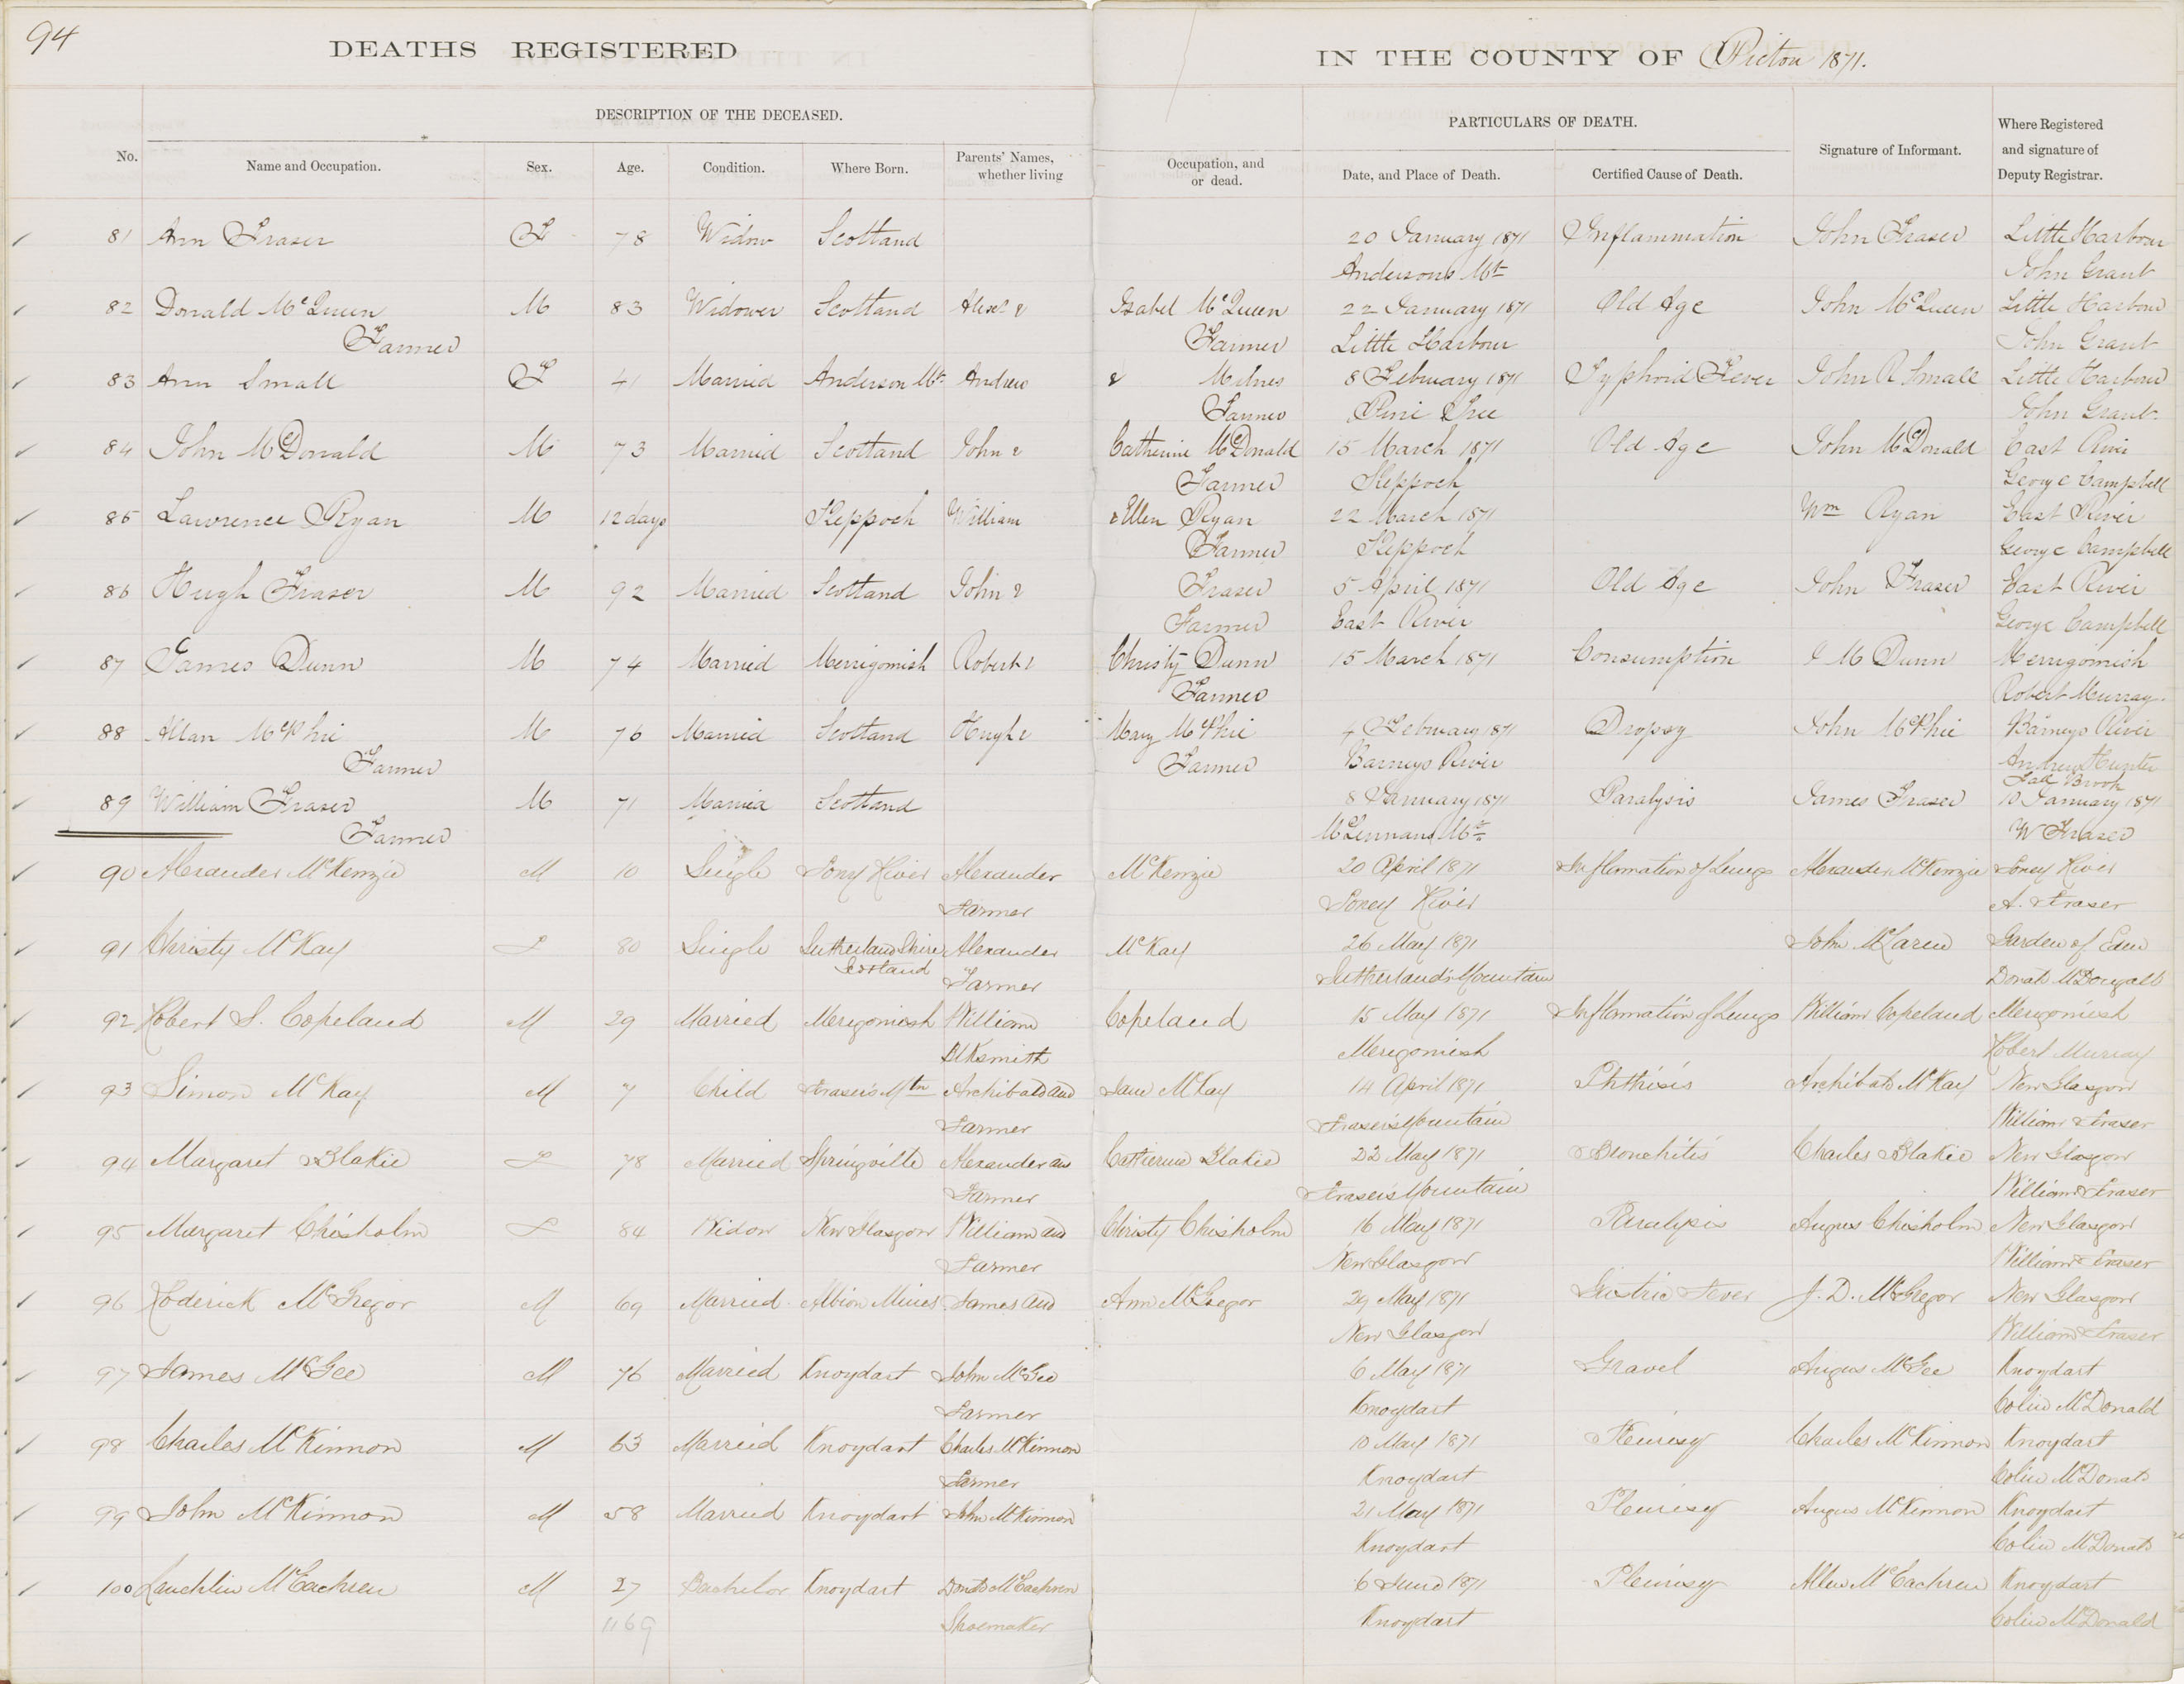 94
DEATHS REGISTERED IN THE COUNTY OF Pictou 1871.
DESCRIPTION OF THE DECEASED. PARTICULARS OF DEATH.
No. Name and Occupation. Sex. Age. Condition. Where Born. Parents' Names, whether living Occupation, and or dead. Date, and Place of Death. Certified Cause of Death. Signature of Informant. Where Registered and signature of Deputy Registrar.
81 Ann Fraser F 78 Widow Scotland 20 January 1871 Inflammation John Fraser Little Harbour
Andersons Mt John Grant
82 Donald McQueen M 83 Widower Scotland Alexr & Isabel McQueen 22 January 1871 Old Age John McQueen Little Harbour
Farmer Farmer Little Harbour John Grant
83 Ann Small F 41 Married Anderson Mt Andrew & McInnes 8 February 1871 Typhoid Fever John R Small Little Harbour
Farmer Pine Tree John Grant
84 John McDonald M 73 Married Scotland John & Catherine McDonald 15 March 1871 Old Age John McDonald East River
Farmer Keppoch George Campbell
85 Lawrence Ryan M 12 days Keppoch William & Ellen Ryan 22 March 1871 Wm Ryan East River
Farmer Keppoch George Campbell
86 Hugh Fraser M 92 Married Scotland John & Fraser 5 April 1871 Old Age John Fraser East River
Farmer East River George Campbell
87 James Dunn M 74 Married Merrigomish Robert & Christy Dunn 15 March 1871 Consumption J M Dunn Merrigomish
Farmer Robert Murray
88 Allan McPhie M 76 Married Scotland Hugh & Mary McPhie 4 February 1871 Dropsy John McPhie Barneys River
Farmer Farmer Barneys River Andrew Hunter
Fall Brook
89 William Fraser M 71 Married Scotland 8 January 1871 Paralysis James Fraser 10 January 1871
Farmer McLennans Mt W Fraser
90 Alexander McKenzie M 10 Single Toney River Alexander McKenzie 20 April 1871 Inflamation of Lungs Alexander McKenzie Toney River
Farmer Toney River A. Fraser
91 Christy McKay F 80 Single Sutherland Shire Alexander McKay 26 May 1871 John McLaren Garden of Eden
Scotland Farmer Sutherland's Mountain Donald McDougald
92 Robert S. Copeland M 29 Married Merigomish William Copeland 15 May 1871 Inflamation of Lungs William Copeland Merigomish
Blksmith Merigomish Robert Murray
93 Simon McKay M 7 Child Fraser's Mtn Archibald and Jane McKay 14 April 1871 Phthisis Archibald McKay New Glasgow
Farmer Fraser's Mountain William Fraser
94 Margaret Blakie F 78 Married Springville Alexander and Catherine Blakie 22 May 1871 Bronchitis Charles Blakie New Glasgow
Farmer Fraser's Mountain William Fraser
95 Margaret Chisholm F 84 Widow New Glasgow William and Christy Chisholm 16 May 1871 Paralysis Angus Chisholm New Glasgow
Farmer New Glasgow William Fraser
96 Roderick McGregor M 69 Married Albion Mines James and Ann McGregor 29 May 1871 Gastric Fever J. D. McGregor New Glasgow
New Glasgow William Fraser
97 James McGee M 76 Married Knoydart John McGee 6 May 1871 Gravel Angus McGee Knoydart
Farmer Knoydart Colin McDonald
98 Charles McKinnon M 63 Married Knoydart Charles McKinnon 10 May 1871 Pleurisy Charles McKinnon Knoydart
Farmer Knoydart Colin McDonald
99 John McKinnon M 58 Married Knoydart John McKinnon 21 May 1871 Pleurisy Angus McKinnon Knoydart
Knoydart Colin McDonald
100 Lauchlin McEachren M 27 Bachelor Knoydart Donald McEachren 6 June 1871 Pleurisy Allen McEachren Knoydart
1169 Shoemaker Knoydart Colin McDonald